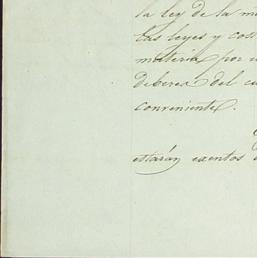 la ley de la m
Las leyes y cos
materia por
deberes del c
conveniente.
estarán exentos